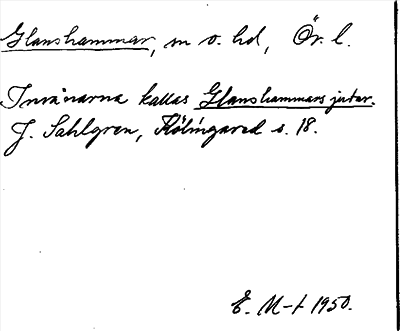 Glanshammar, sn o. hd, Ör. l.
Invånarna kallas Glanshammars jutar.
J. Sahlgren, Hölingared s. 18.
E. M-t 1950.